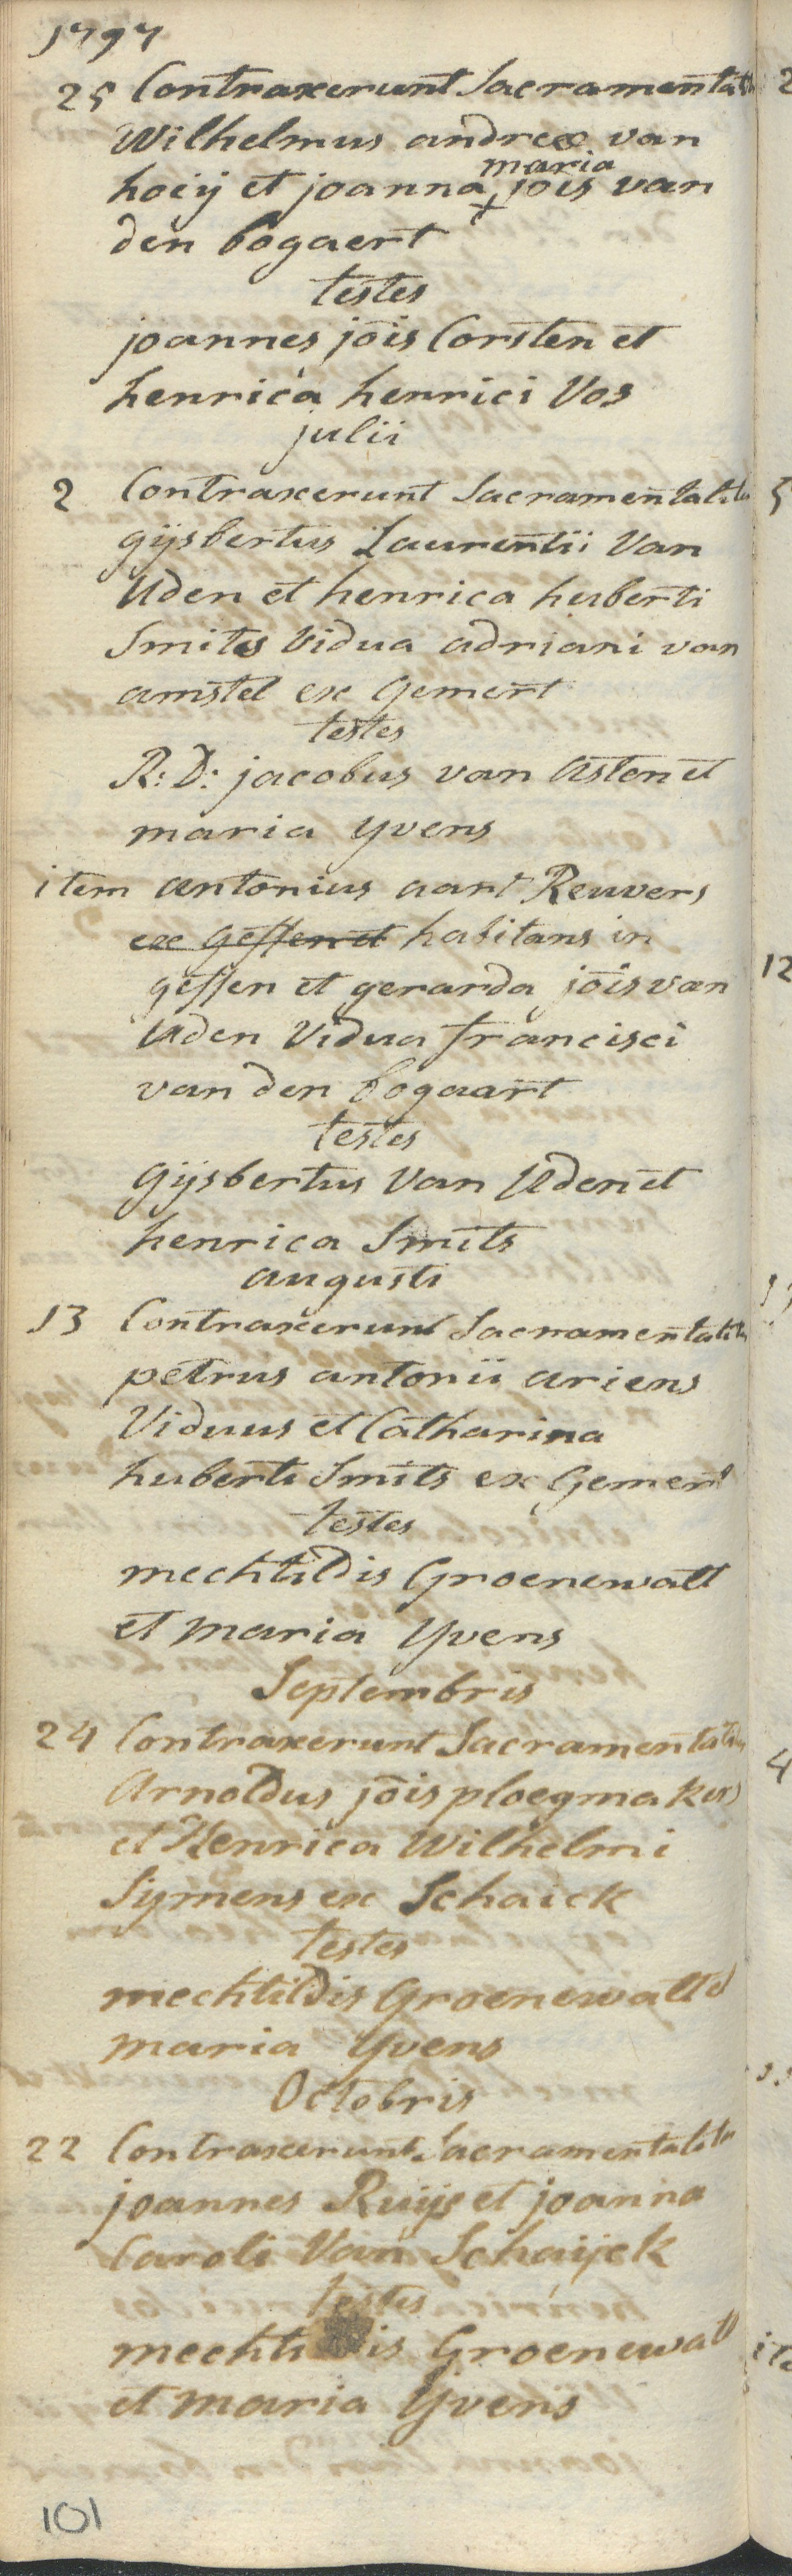 1797
25 Contraxerunt Sacramentalit
Wilhelmus andreæ van
maria
hoeij et joanna + jois van
den bogaert
testes
joannes jois Corsten et
henrica henrici Vos
julii
2 Contraxerunt Sacramentalit
gijsbertus Laurentii Van
Uden et henrica huberti
Smits Vidua adriani van
amstel ex Gemert
testes
R: D: jacobus van Asten et
maria Yvens
item antonius aart Reuvers
ex Geffen et habitans in
geffen et gerarda jois van
Uden Vidua francisci
van den bogaart
testes
Gijsbertus Van Uden et
henrica Smits
augusti
13 Contraxerunt Sacramentalit
petrus antonii ariens
Viduus et Catharina
huberti Smits ex Gemert
testes
mechtildis Groenewalt
et maria Yvens
Septembris
24 Contraxerunt Sacramentalit
Arnoldus jois ploegmakers
et Henrica Wilhelmi
Sijmens ex Schaick
testes
mechtildis Groenewalt et
maria Yvens
Octobris
22 Contraxerunt Sacramentalit
joannes Ruijs et joanna
Caroli Van Schaijck
testes
mechtildis Groenewalt
et maria Yvens
101